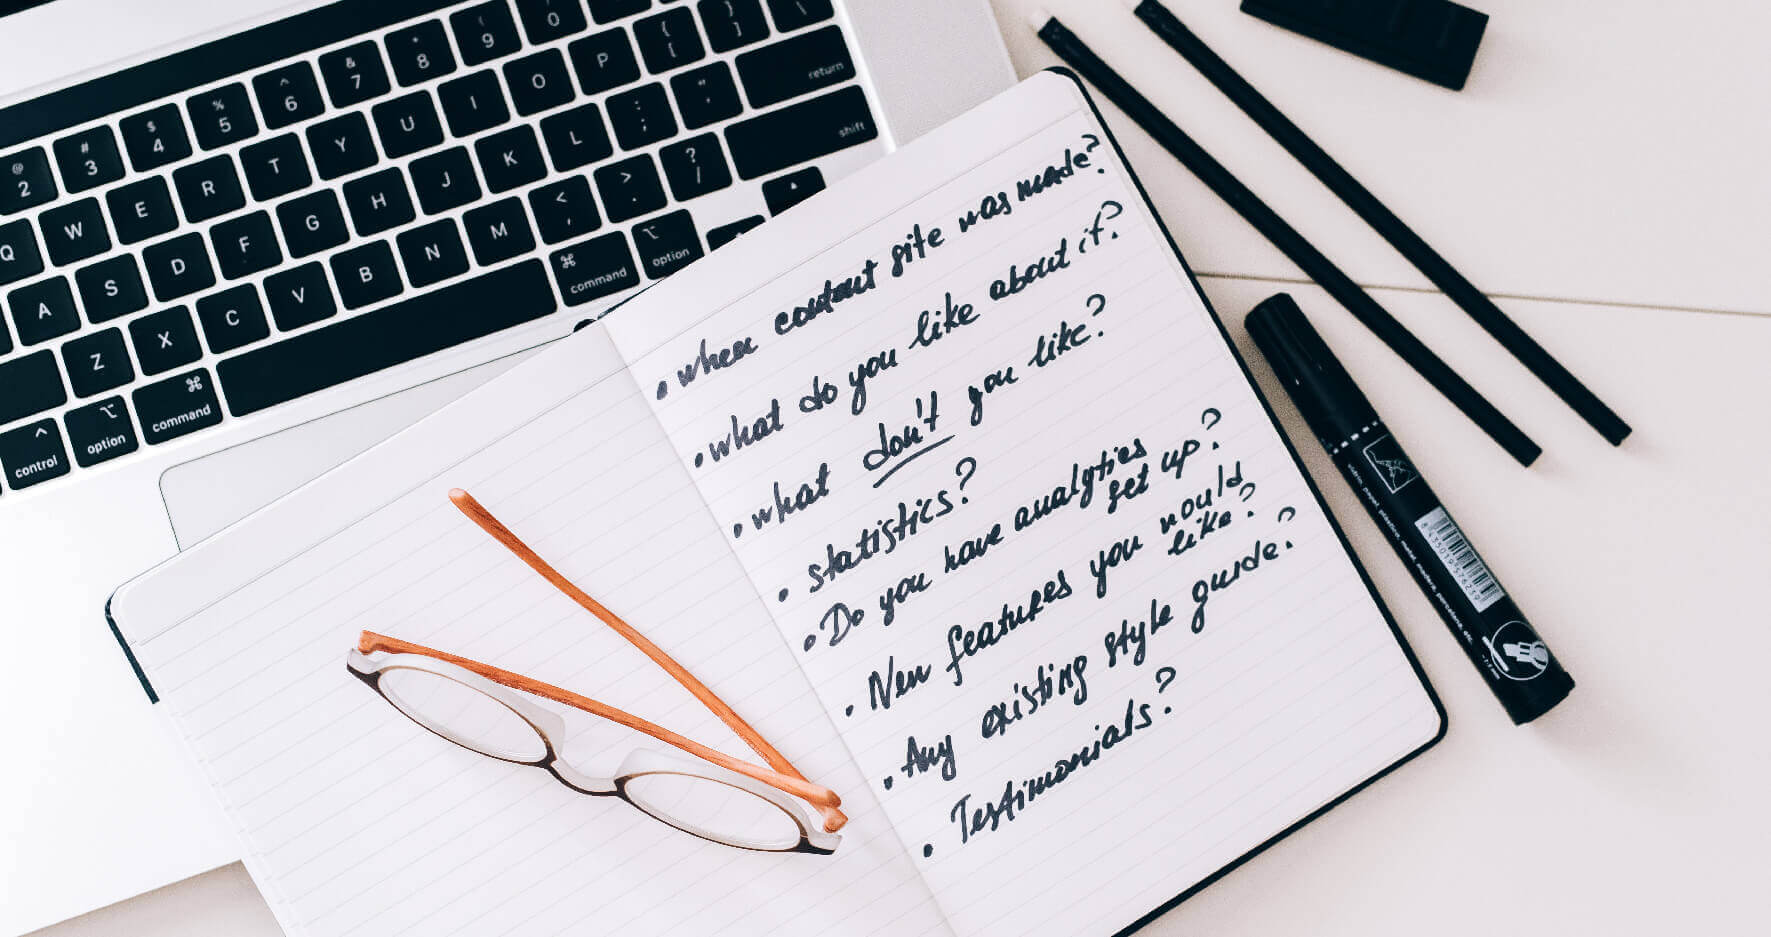 @ 2
# 3
$ 4
% 5
^ 6
& 7
* 8
( 9
) 0
Q W E R T Y U I O P { [ } ] | \
A S D F G H J K L : ; " ' return
Z X C V B N M < , > . ? / shift
control ^
option ⌥
command ⌘
⌘ command
⌥ option
• when content site was made?
• what do you like about it?
• what don't you like?
• statistics?
• Do you have analytics
set up?
• New features you would
like?
• Any existing style guide?
• Testimonials?